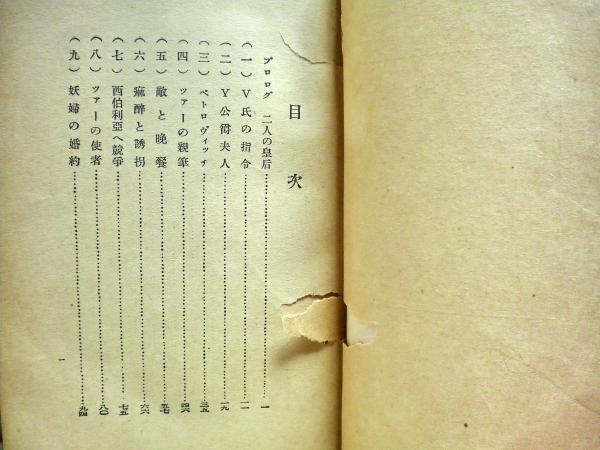 目次
プロログ 二人の皇后…………一
（一）V氏の指令…………一一
（二）Y公爵夫人…………一九
（三）ペトロヴィッチ…………三五
（四）ツァーの親筆…………四六
（五）敵と晩餐…………五七
（六）痲醉と誘拐…………六六
（七）西伯利亞へ競爭…………七五
（八）ツァーの使者…………八〇
（九）妖婦の婚約…………九四
一